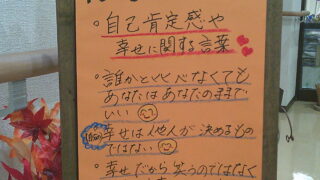 ・自己肯定感や
幸せに関する言葉
・誰かとくらべなくても
あなたはあなたのままで
いい
幸せは他人が決めるもの
ではない
・幸せだから笑うのではなく